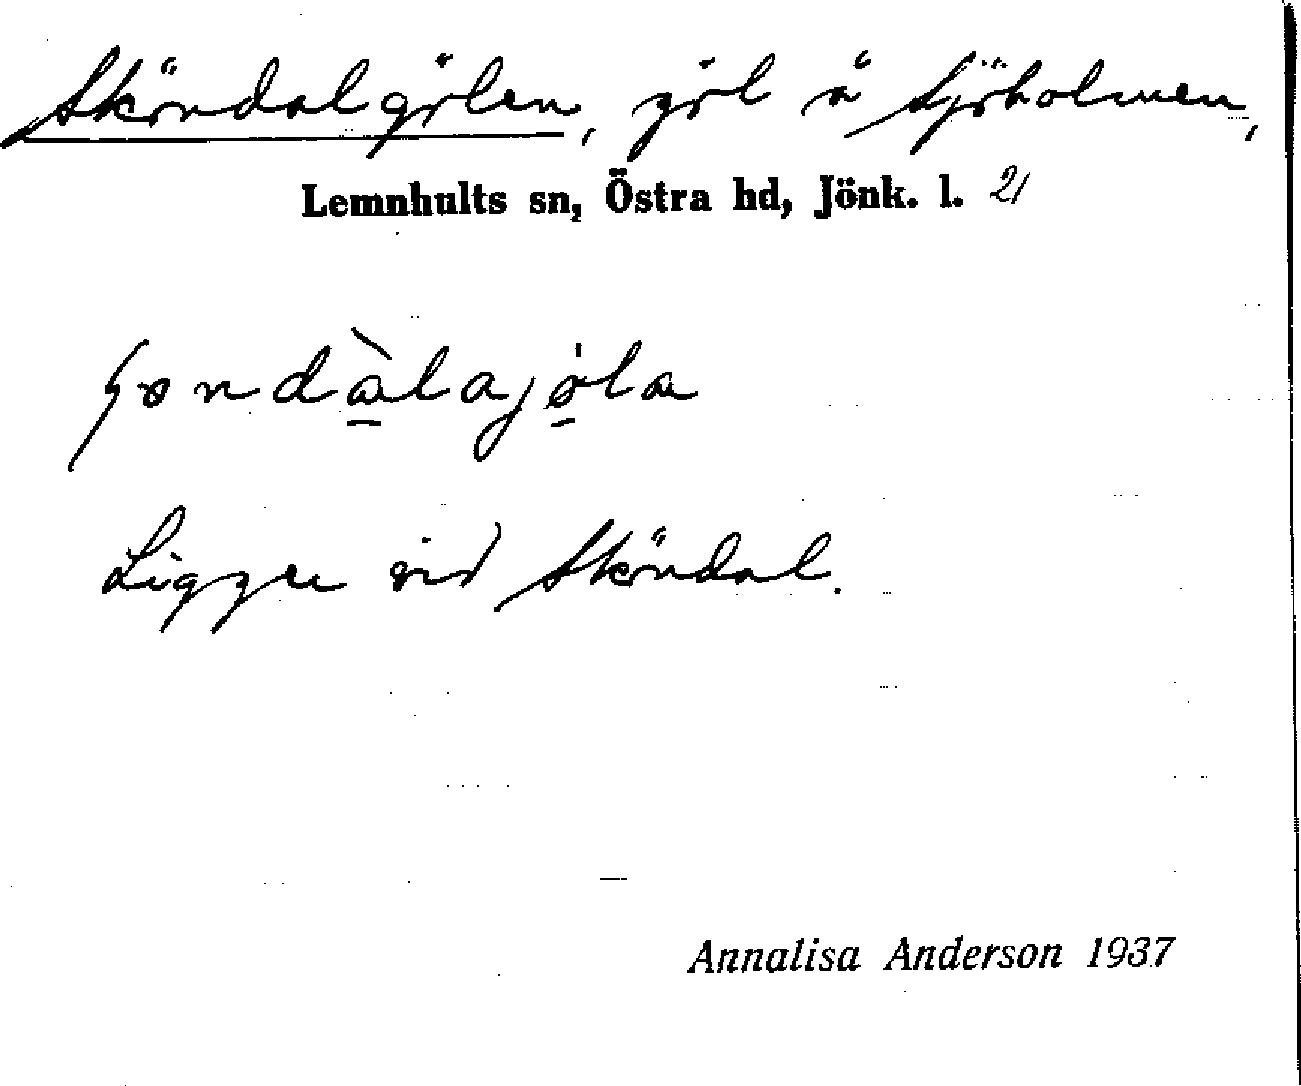 Sköndalgölen, göl å Sjöholmen,
Lemnhults sn, Östra hd, Jönk. l. 21
Ligger vid Sköndal.
Annalisa Anderson 1937